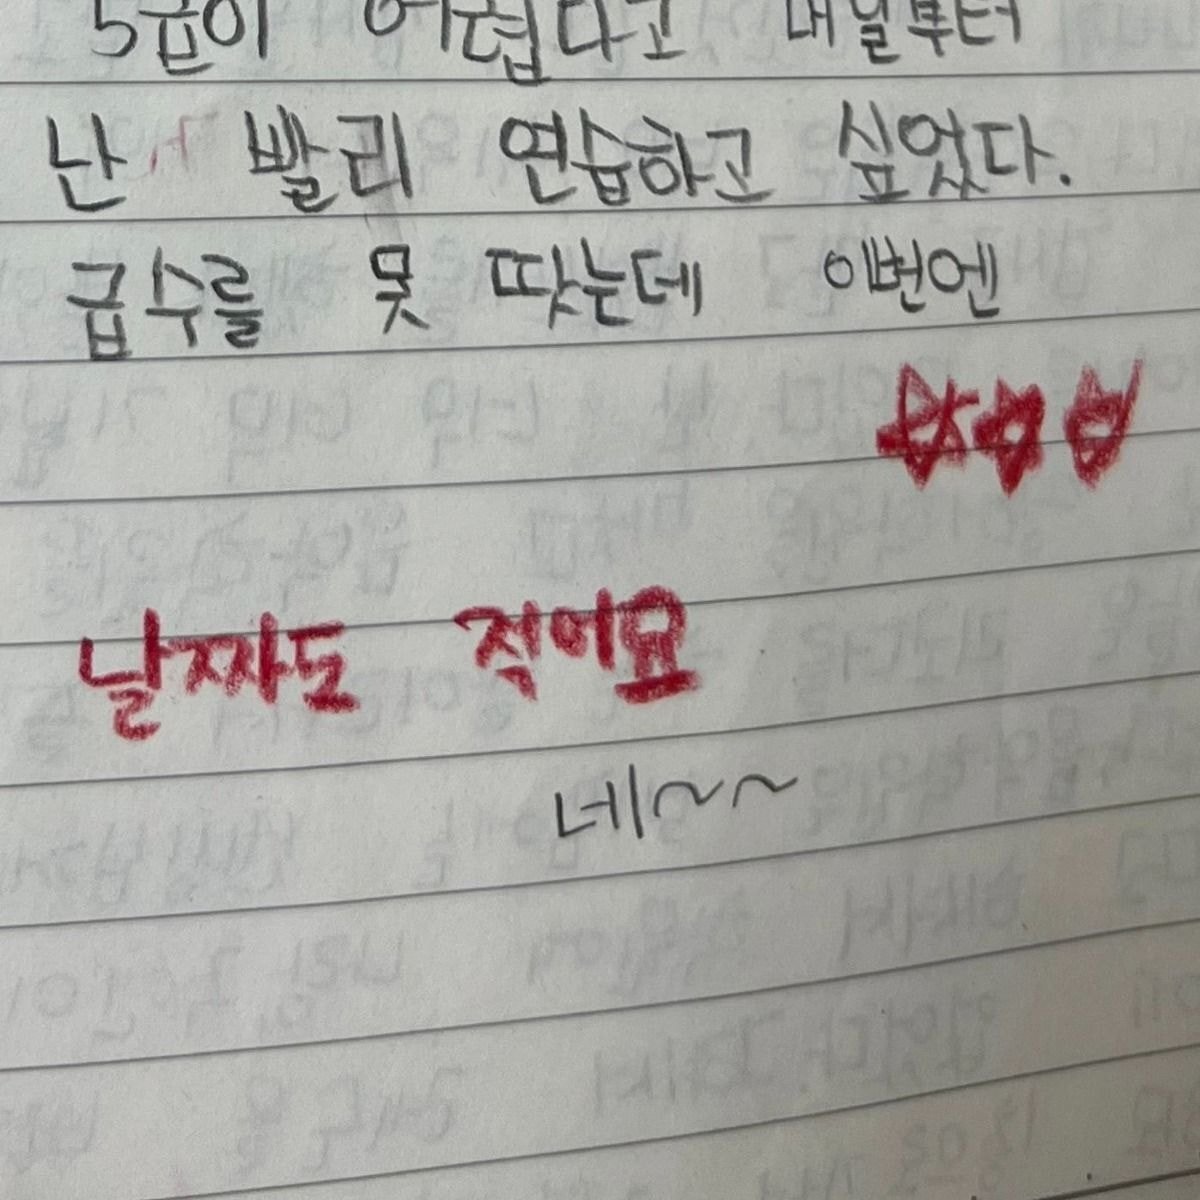 5급이 어렵다고 매일부터
난 빨리 연습하고 싶었다.
급수를 못 땃는데 이번엔
날짜도 적어요
네~~